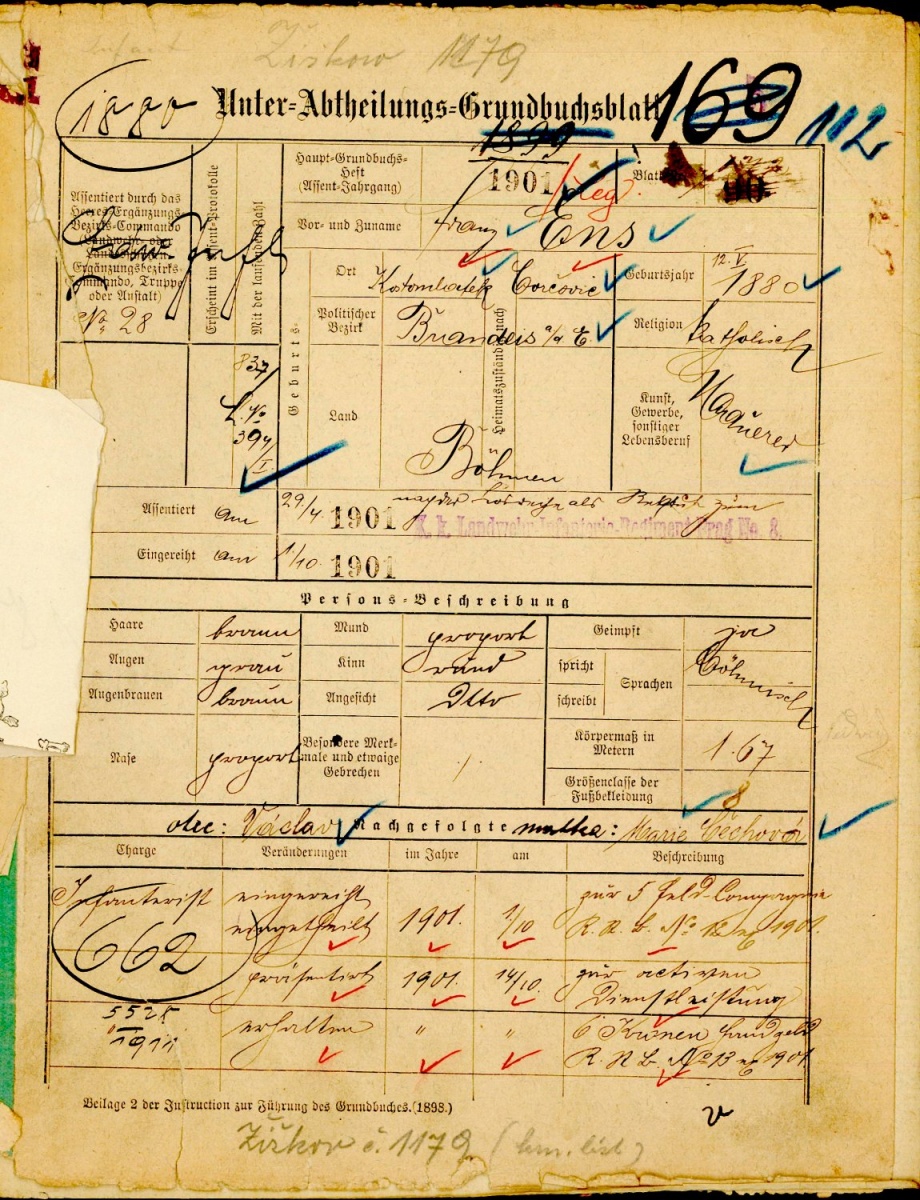 Žižkow 1179
1880 Unter-Abtheilungs-Grundbuchsblatt 169 112
1899
Haupt-Grundbuchs-
Heft
(Assent-Jahrgang)
1901
Assentiert durch das
Heeres-Ergänzungs-
Bezirks-Commando
Landwehr- oder
Ergänzungsbezirks-
Commando, Truppe
oder Anstalt)
No 28
Erscheint im Assent-Protokolle
Mit der laufenden Zahl
837
L. No
394
I.
Vor- und Zuname Franz Ens
Geburts-
Ort
Geburtsjahr 12. V. 1880
Politischer
Bezirk
Brandeis a/d E.
Heimatszuständig nach
Religion katholisch
Land Böhmen
Kunst,
Gewerbe,
sonstiger
Lebensberuf
Assentiert am 29./4 1901 als Rekrut zum
K. k. Landwehr-Infanterie-Regiment Prag No. 8.
Eingereiht am 1/10. 1901
Persons-Beschreibung
Haare braun Mund proport Geimpft ja
Augen grau Kinn rund spricht Sprachen böhmisch
Augenbrauen braun Angesicht Dtto schreibt
Nase proport
Besondere Merk-
male und etwaige
Gebrechen
Körpermaß in
Metern
1·67
Größenclasse der
Fußbekleidung
8
otec: Václav Nachgefolgte matka: Marie Čechová
Charge Veränderungen im Jahre am Beschreibung
Infanterist eingereiht zur 5 Feld-Compagnie
eingetheilt 1901. 1/10
662
präsentirt 1901 14/10. zur activen
Dienstleistung
5528
1911
erhalten " " 6 Kronen Handgeld
1901.
Beilage 2 der Instruction zur Führung des Grundbuches. (1898.)
Žižkov č. 1179